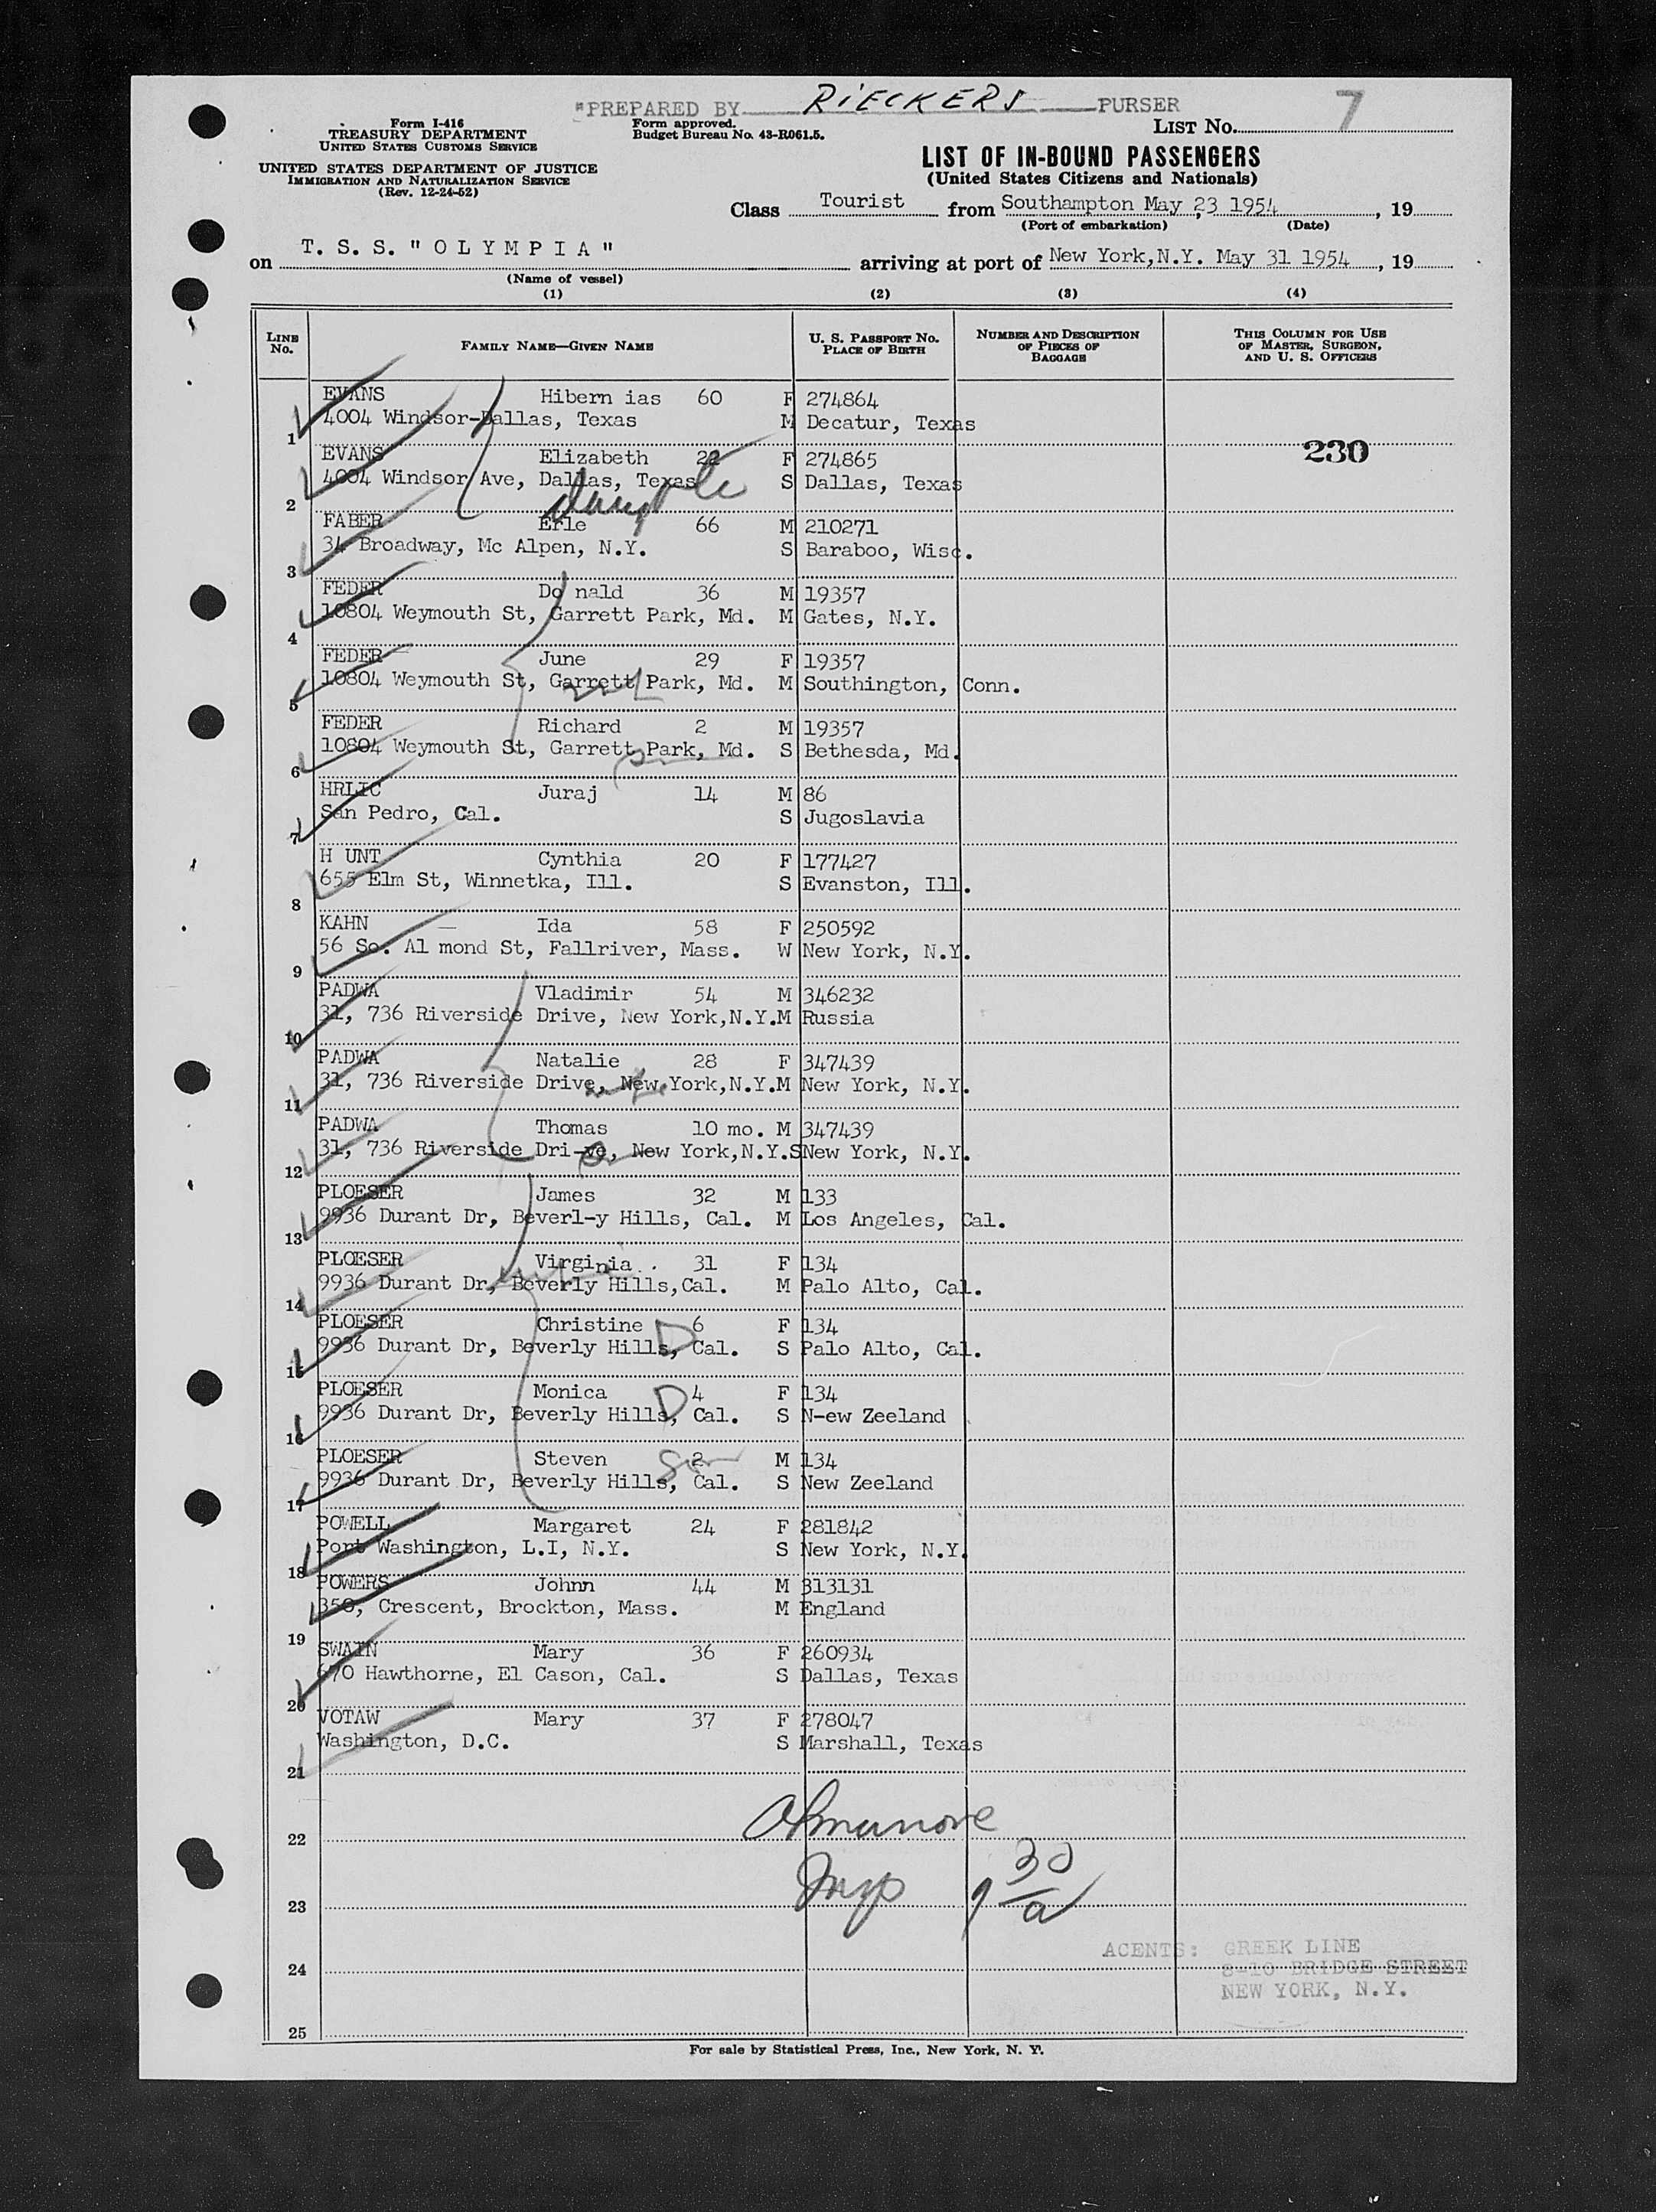 "PREPARED BY RIECKERS PURSER
7
Form I-416
TREASURY DEPARTMENT
UNITED STATES CUSTOMS SERVICE
UNITED STATES DEPARTMENT OF JUSTICE
IMMIGRATION AND NATURALIZATION SERVICE
(Rev. 12-24-52)
Form approved.
Budget Bureau No. 43-R061.5.
LIST No.
LIST OF IN-BOUND PASSENGERS
(United States Citizens and Nationals)
Class Tourist from Southampton May 23 1954, 19
(Port of embarkation) (Date)
on T. S. S. " O L Y M P I A " arriving at port of New York,N.Y. May 31 1954, 19
(Name of vessel)
(1) (2) (3) (4)
LINE No. FAMILY NAME—GIVEN NAME U. S. PASSPORT No. PLACE OF BIRTH NUMBER AND DESCRIPTION OF PIECES OF BAGGAGE THIS COLUMN FOR USE OF MASTER, SURGEON, AND U. S. OFFICERS
EVANS Hibern ias 60 F 274864
4004 Windsor-Dallas, Texas M Decatur, Texas
1
230
EVANS Elizabeth 22 F 274865
4004 Windsor Ave, Dallas, Texas S Dallas, Texas
2
FABER Erle 66 M 210271
34 Broadway, Mc Alpen, N.Y. S Baraboo, Wisc.
3
FEDER Do nald 36 M 19357
10804 Weymouth St, Garrett Park, Md. M Gates, N.Y.
4
FEDER June 29 F 19357
10804 Weymouth St, Garrett Park, Md. M Southington, Conn.
5
FEDER Richard 2 M 19357
10804 Weymouth St, Garrett Park, Md. S Bethesda, Md.
6
HRLIC Juraj 14 M 86
San Pedro, Cal. S Jugoslavia
7
H UNT Cynthia 20 F 177427
655 Elm St, Winnetka, Ill. S Evanston, Ill.
8
KAHN Ida 58 F 250592
56 So. Al mond St, Fallriver, Mass. W New York, N.Y.
9
PADWA Vladimir 54 M 346232
31, 736 Riverside Drive, New York,N.Y.M Russia
10
PADWA Natalie 28 F 347439
31, 736 Riverside Drive, New York,N.Y.M New York, N.Y.
11
PADWA Thomas 10 mo. M 347439
31, 736 Riverside Dri-ve, New York,N.Y.S New York, N.Y.
12
PLOESER James 32 M 133
9936 Durant Dr, Beverl-y Hills, Cal. M Los Angeles, Cal.
13
PLOESER Virginia . . 31 F 134
9936 Durant Dr, Beverly Hills,Cal. M Palo Alto, Cal.
14
PLOESER Christine D 6 F 134
9936 Durant Dr, Beverly Hills, Cal. S Palo Alto, Cal.
15
PLOESER Monica D 4 F 134
9936 Durant Dr, Beverly Hills, Cal. S N-ew Zeeland
16
PLOESER Steven 2 M 134
9936 Durant Dr, Beverly Hills, Cal. S New Zeeland
17
POWELL Margaret 24 F 281842
Port Washington, L.I, N.Y. S New York, N.Y.
18
POWERS Johnn 44 M 313131
350, Crescent, Brockton, Mass. M England
19
SWAIN Mary 36 F 260934
670 Hawthorne, El Cason, Cal. S Dallas, Texas
20
VOTAW Mary 37 F 278047
Washington, D.C. S Marshall, Texas
21
22
Insp 9 30/a
23
ACENTS: GREEK LINE
24
8-10 BRIDGE STREET
NEW YORK, N.Y.
25
For sale by Statistical Press, Inc., New York, N. Y.